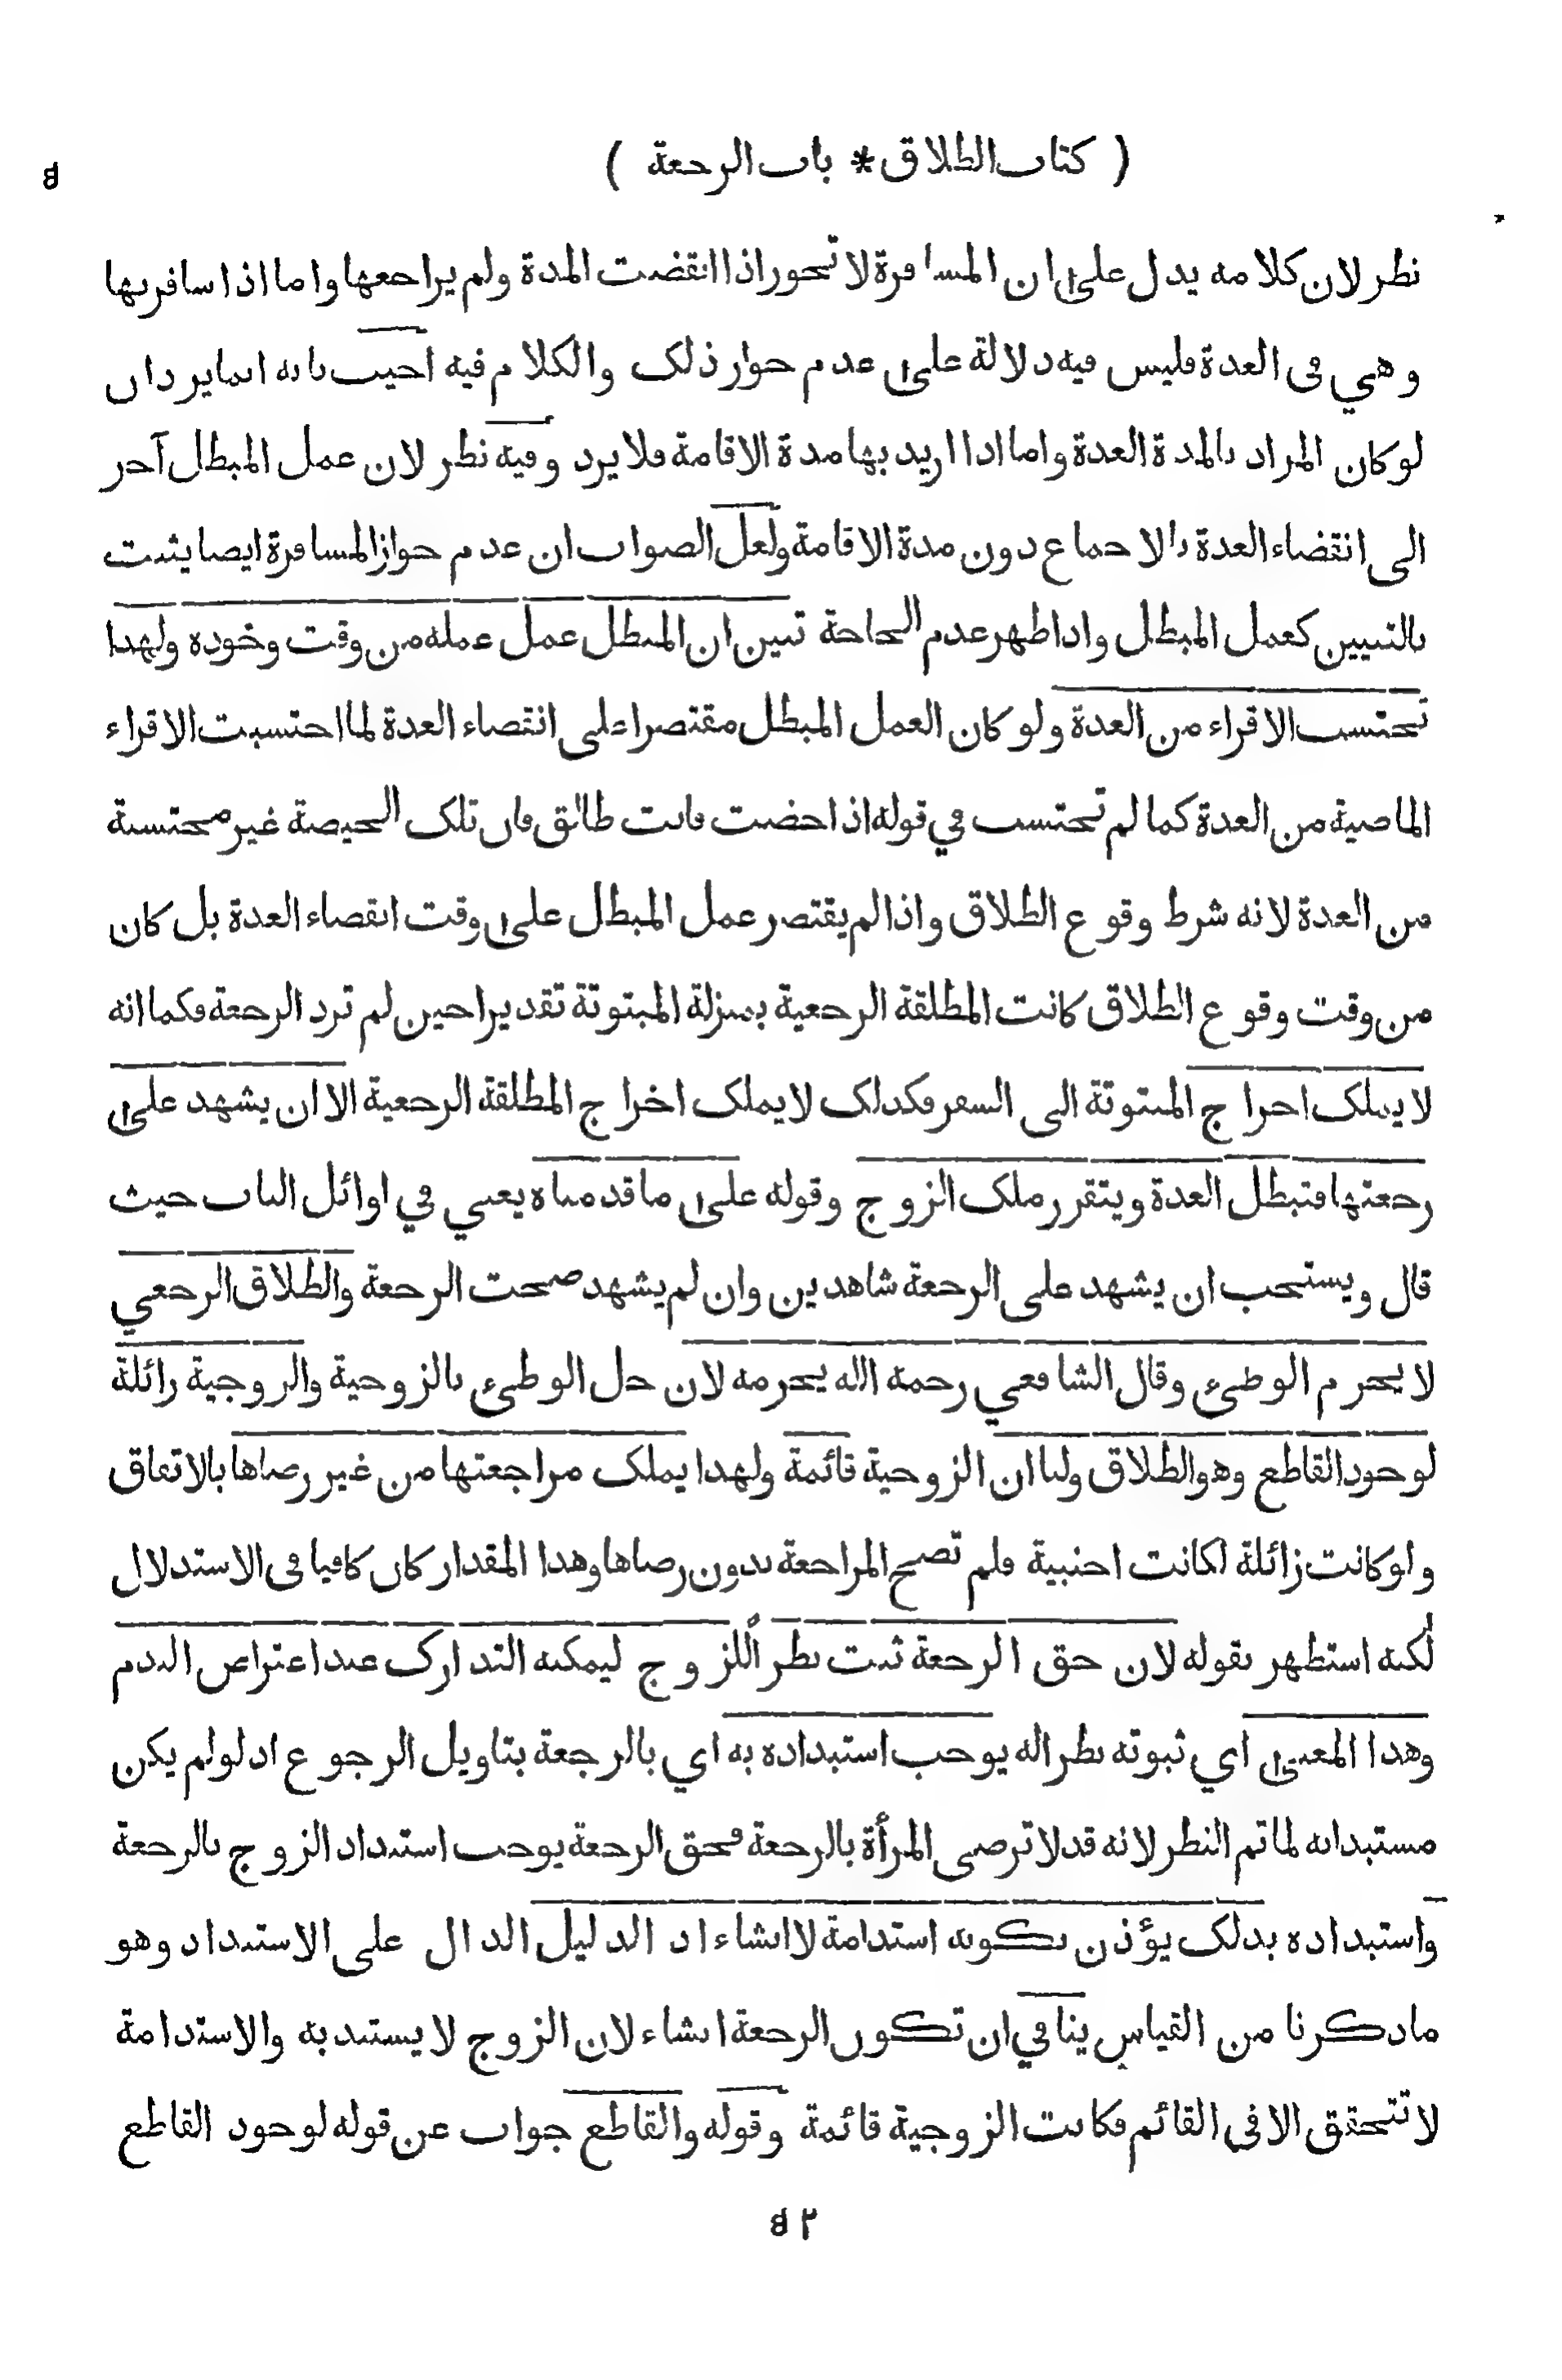 ( كتاب الطلاق * باب الرجعة )
نظر لان كلامه يدل على ان المسافرة لا تجوز اذا انقضت المدة ولم يراجعها واما اذا سافر بها
وهي في العدة فليس فيه دلالة على عدم جواز ذلك والكلام فيه اجيب بانه انما يرد ان
لو كان المراد بالمدة العدة واما اذا اريد بها مدة الاقامة فلا يرد وفيه نظر لان عمل المبطل آخر
الى انقضاء العدة بالاجماع دون مدة الاقامة ولعل الصواب ان عدم جواز المسافرة ايضا يثبت
بالتبيين كعمل المبطل واذا ظهر عدم الحاجة تبين ان المبطل عمل عمله من وقت وجوده ولهذا
تحتسب الاقراء من العدة ولو كان العمل المبطل مقتصرا على انقضاء العدة لما احتسبت الاقراء
الماضية من العدة كما لم تحتسب في قوله اذا حضت فانت طالق فان تلك الحيضة غير محتسبة
من العدة لانه شرط وقوع الطلاق واذا لم يقتصر عمل المبطل على وقت انقضاء العدة بل كان
من وقت وقوع الطلاق كانت المطلقة الرجعية بمنزلة المبتوتة تقديرا حين لم ترد الرجعة فكما انه
لا يملك اخراج المبتوتة الى السفر فكذلك لا يملك اخراج المطلقة الرجعية الا ان يشهد على
رجعتها فتبطل العدة ويتقرر ملك الزوج وقوله على ما قدمناه يعني في اوائل الباب حيث
قال ويستحب ان يشهد على الرجعة شاهدين وان لم يشهد صحت الرجعة والطلاق الرجعي
لا يحرم الوطىء وقال الشافعي رحمة الله يحرمه لان حل الوطىء بالزوجية والزوجية زائلة
لوجود القاطع وهو الطلاق ولنا ان الزوجية قائمة ولهذا يملك مراجعتها من غير رضاها بالاتفاق
ولو كانت زائلة لكانت اجنبية فلم تصح المراجعة بدون رضاها وهذا المقدار كان كافيا في الاستدلال
لكنه استظهر بقوله لان حق الرجعة ثبت نظرا للزوج ليمكنه التدارك عند اعتراض الندم
وهذا المعنى اي ثبوته نظرا له يوجب استبداده به اي بالرجعة بتاويل الرجوع اذ لو لم يكن
مستبدا به لما تم النظر لانه قد لا ترضى المرأة بالرجعة فحق الرجعة يوجب استبداد الزوج بالرجعة
واستبداده بذلك يؤذن بكونه استدامة لا انشاء اذ الدليل الدال على الاستبداد وهو
ما ذكرنا من القياس ينافي ان تكون الرجعة انشاء لان الزوج لا يستبد به والاستدامة
لا تتحقق الا في القائم فكانت الزوجية قائمة وقوله والقاطع جواب عن قوله لوجود القاطع